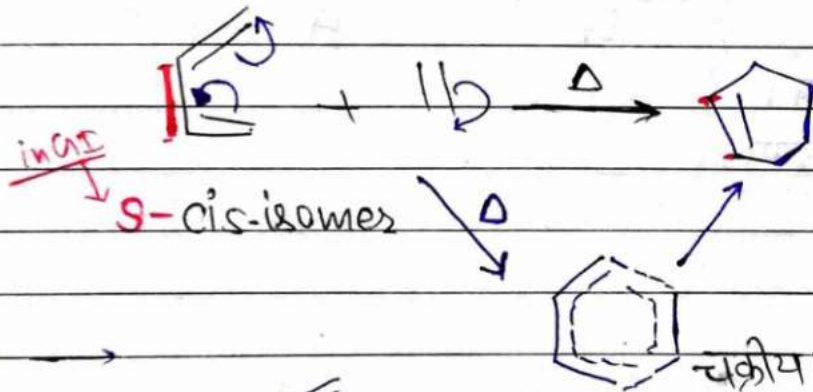 + Δ
in GI
S-cis-isomer
Δ
चक्रीय